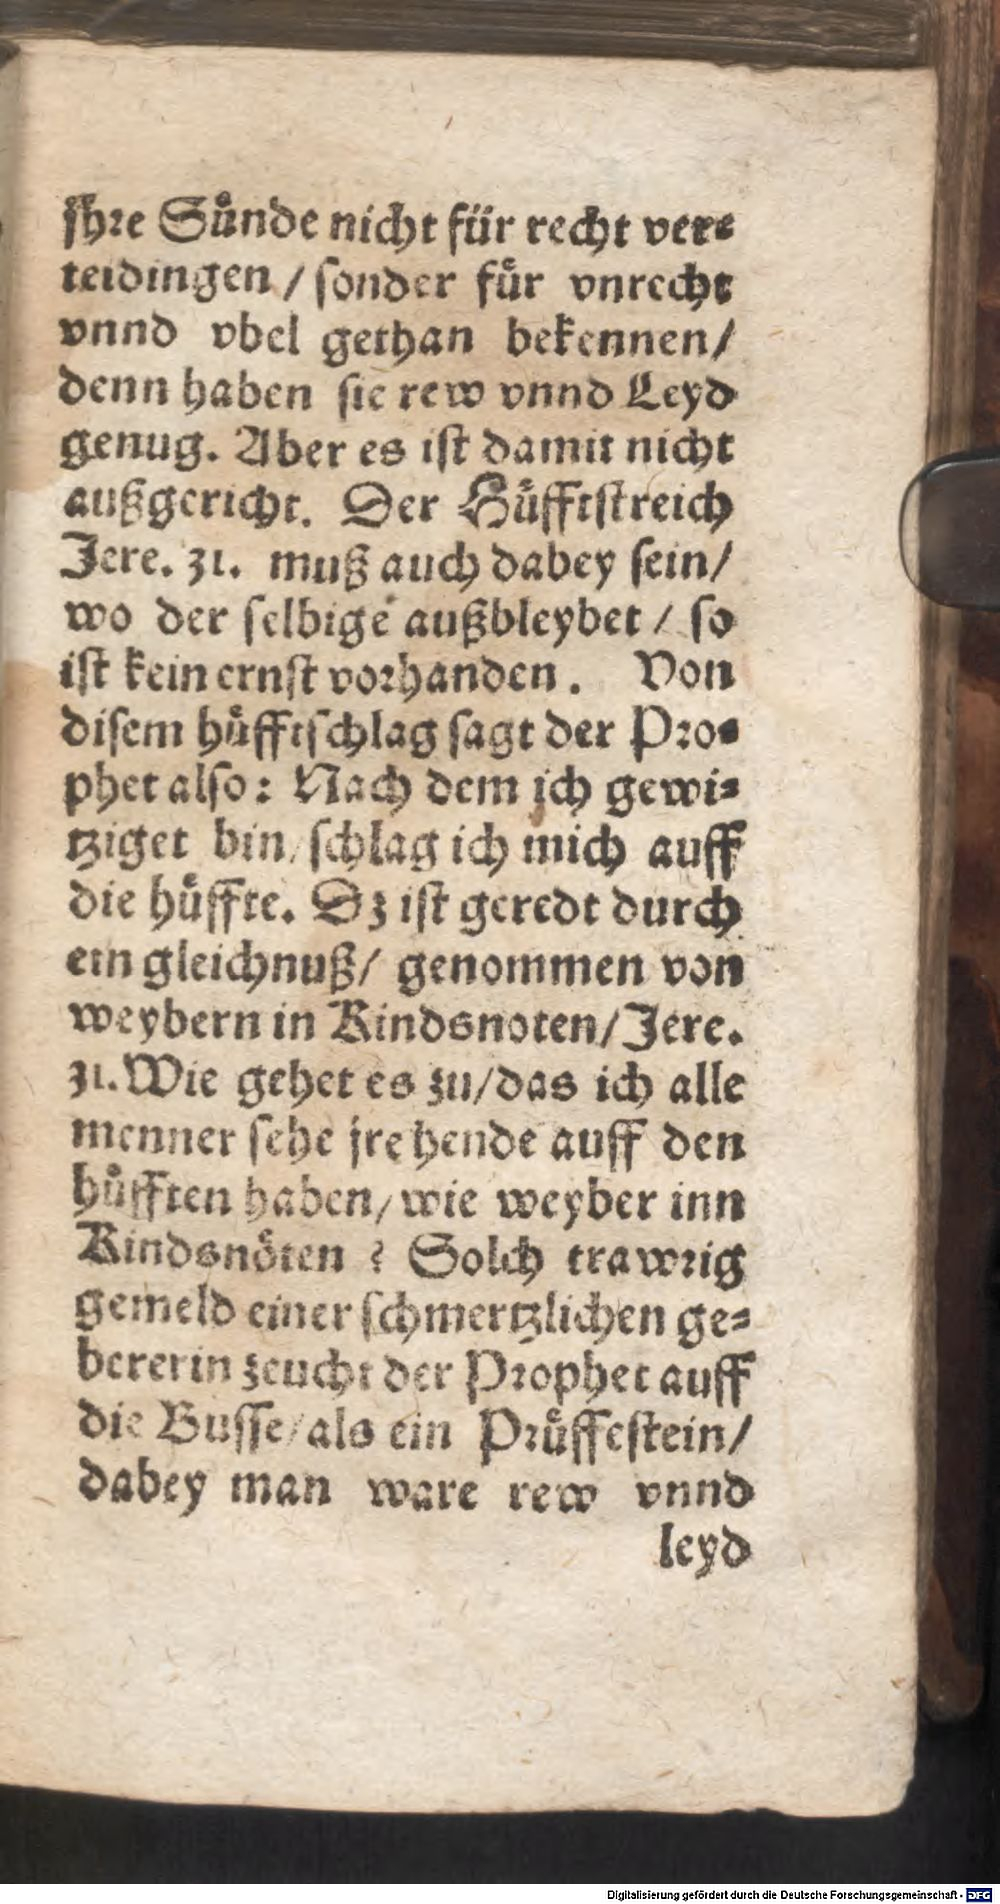 jhre Sůnde nicht für recht ver⸗
teidingen / sonder fůr vnrecht
vnnd vbel gethan bekennen/
denn haben sie rew vnnd Leyd
genug. Aber es ist damit nicht
außgericht. Der Hůfftstreich
Jere. 31. muß auch dabey sein/
wo der selbige außbleybet / so
ist kein ernst vorhanden. Von
disem hůfftschlag sagt der Pro⸗
phet also: Nach dem ich gewi⸗
tziget bin/ schlag ich mich auff
die hůffte. Dz ist geredt durch
ein gleichnuß/ genommen von
weybern in Kindsnoten/Jere.
31. Wie gehet es zu/das ich alle
menner sehe jre hende auff den
hůfften haben/ wie weyber inn
Kindsnöten ? Solch trawrig
gemeld einer schmertzlichen ge⸗
bererin zeucht der Prophet auff
die Busse/als ein Průffestein/
dabey man ware rew vnnd
leyd
Digitalisierung gefördert durch die Deutsche Forschungsgemeinschaft - DFG